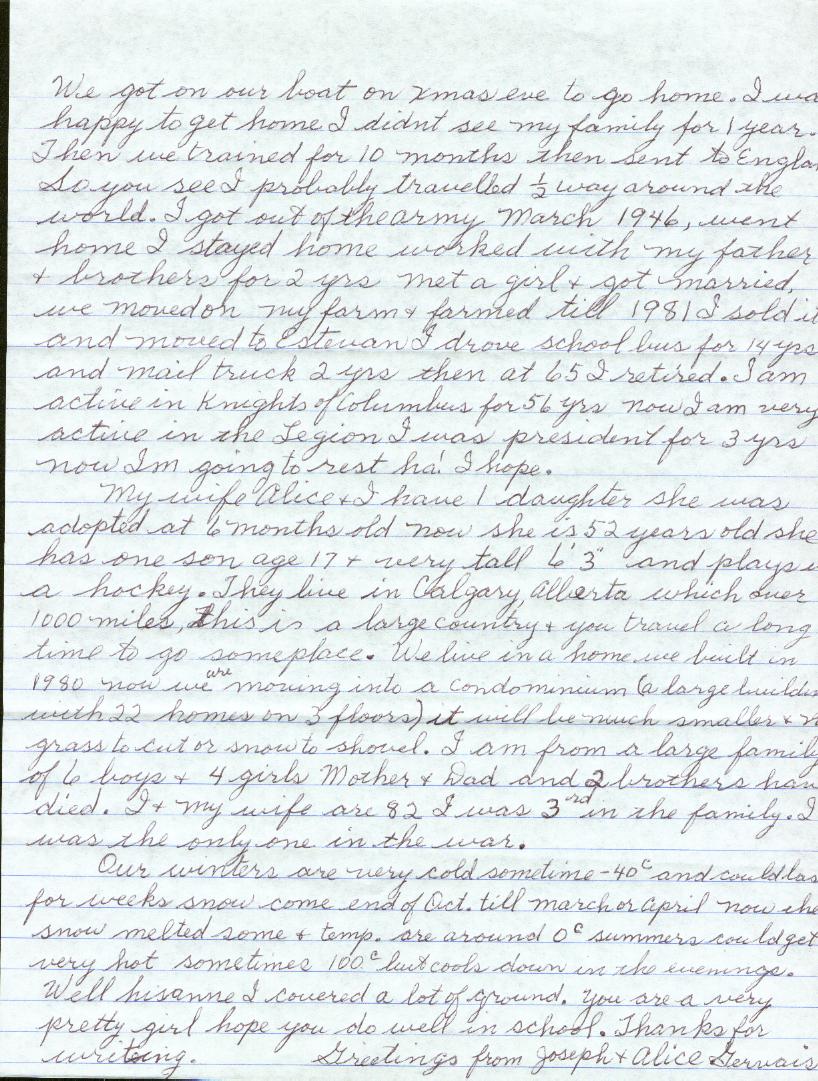 We got on our boat on xmas eve to go home. I wa
happy to get home I didnt see my family for 1 year.
Then we trained for 10 months then sent to Englan
So you see I probably travelled ½ way around the
world. I got out of the army March 1946, went
home I stayed home worked with my father
+ brothers for 2 yrs met a girl + got married,
we moved on my farm + farmed till 1981 I sold it
and moved to Estevan I drove school bus for 14 yrs
and mail truck 2 yrs then at 65 I retired. I am
active in Knights of Columbus for 56 yrs now I am very
active in the Legion I was president for 3 yrs
now Im going to rest ha! I hope.
My wife Alice + I have 1 daughter she was
adopted at 6 months old now she is 52 years old she
has one son age 17 + very tall 6'3" and plays
a hockey. They live in Calgary, Alberta which over
1000 miles, This is a large country + you travel a long
time to go someplace. We live in a home we built in
1980 now we are moving into a condominium (a large buildin
with 22 homes on 3 floors) it will be much smaller + n
grass to cut or snow to shovel. I am from a large family
of 6 boys + 4 girls Mother + Dad and 2 brothers hav
died. I + my wife are 82 I was 3rd in the family. I
was the only one in the war.
Our winters are very cold sometime -40c and could las
for weeks snow come end of Oct. till march or April now the
snow melted some + temp. are around 0c summers could get
very hot sometimes 100c but cools down in the evenings.
Well hisanne I covered a lot of ground. You are a very
pretty girl hope you do well in school. Thanks for
writeing. Greetings from Joseph + Alice Gervais